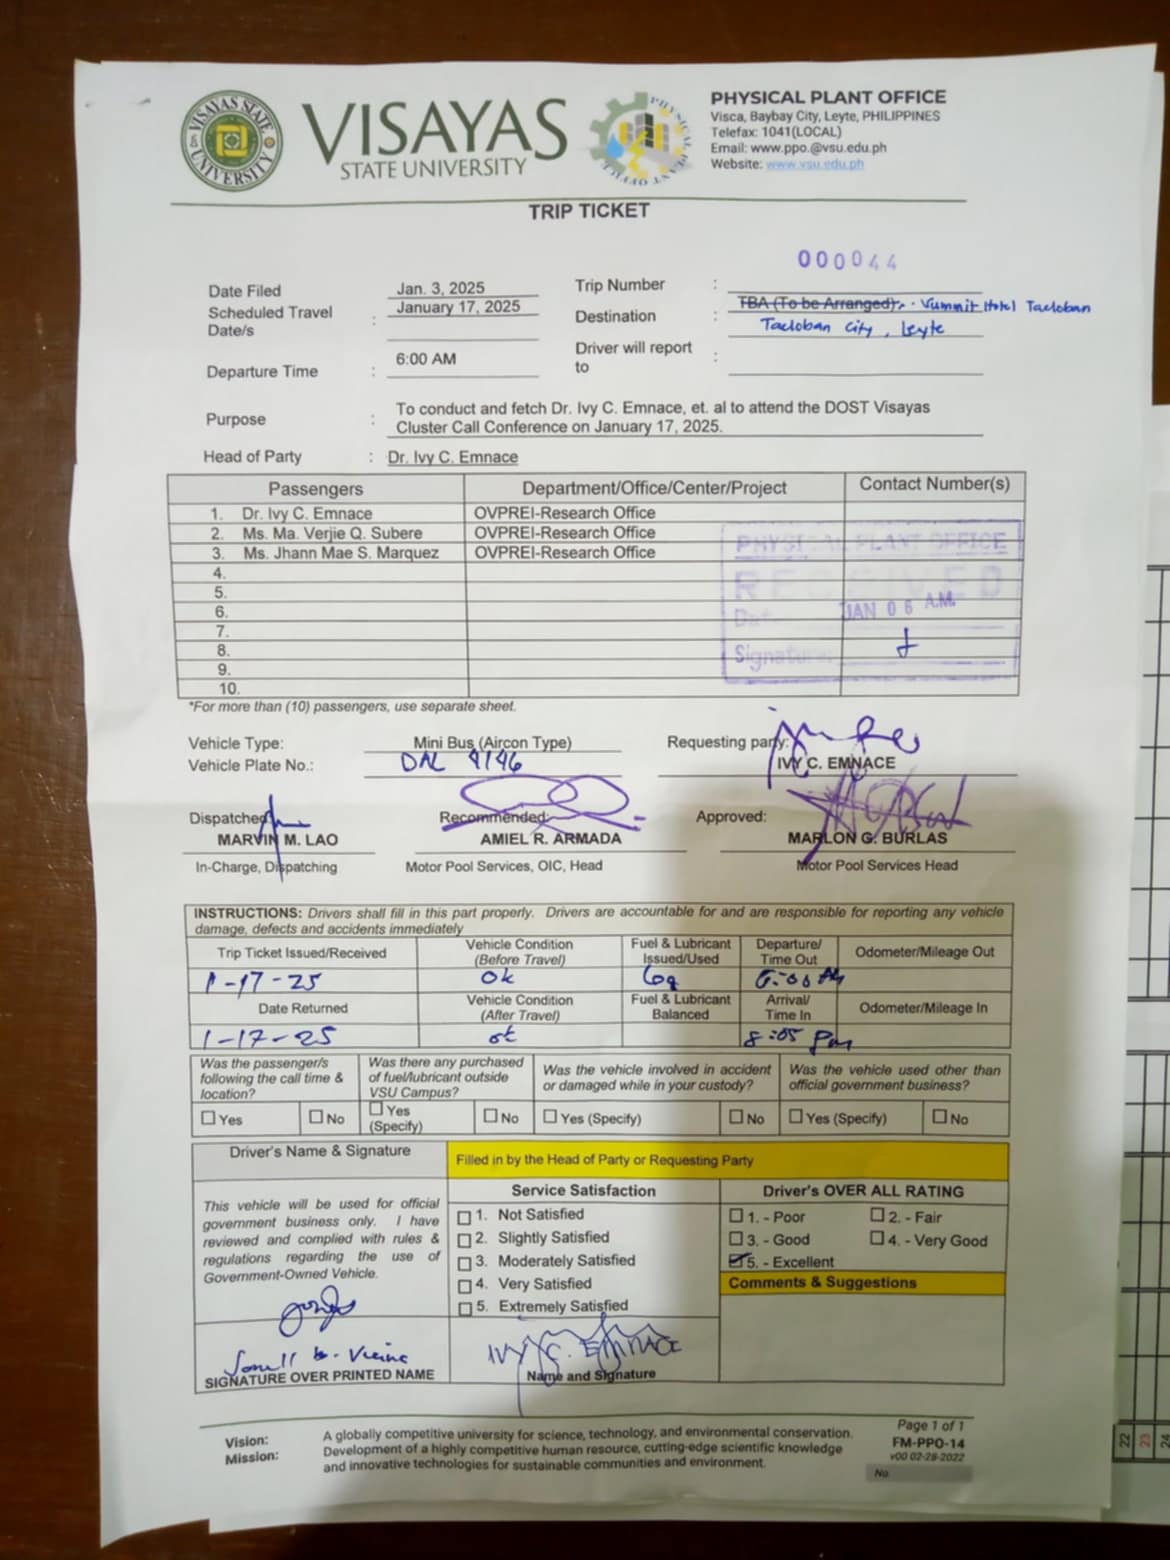 VISAYAS STATE UNIVERSITY
VISAYAS
STATE UNIVERSITY
PHYSICAL PLANT OFFICE
PHYSICAL PLANT OFFICE
Visca, Baybay City, Leyte, PHILIPPINES
Telefax: 1041(LOCAL)
Email: www.ppo.@vsu.edu.ph
Website: www.vsu.edu.ph
TRIP TICKET
000044
Date Filed Jan. 3, 2025 Trip Number :
Scheduled Travel Date/s : January 17, 2025
Destination : TBA (To be Arranged), Summit Hotel Tacloban
Tacloban City, Leyte
Departure Time : 6:00 AM
Driver will report to :
Purpose : To conduct and fetch Dr. Ivy C. Emnace, et. al to attend the DOST Visayas
Cluster Call Conference on January 17, 2025.
Head of Party : Dr. Ivy C. Emnace
Passengers Department/Office/Center/Project Contact Number(s)
1. Dr. Ivy C. Emnace OVPREI-Research Office
2. Ms. Ma. Verjie Q. Subere OVPREI-Research Office
3. Ms. Jhann Mae S. Marquez OVPREI-Research Office
4.
5.
6.
7.
8.
9.
10.
PHYSICAL PLANT OFFICE
RECEIVED
Date JAN 06 A.M.
Signature:
*For more than (10) passengers, use separate sheet.
Vehicle Type: Mini Bus (Aircon Type) Requesting party:
Vehicle Plate No.: DAL 4146 IVY C. EMNACE
Dispatched Recommended: Approved:
MARVIN M. LAO AMIEL R. ARMADA MARLON G. BURLAS
In-Charge, Dispatching Motor Pool Services, OIC, Head Motor Pool Services Head
INSTRUCTIONS: Drivers shall fill in this part properly. Drivers are accountable for and are responsible for reporting any vehicle
damage, defects and accidents immediately
Trip Ticket Issued/Received Vehicle Condition (Before Travel) Fuel & Lubricant Issued/Used Departure/ Time Out Odometer/Mileage Out
1-17-25 ok 6:00 AM
Date Returned Vehicle Condition (After Travel) Fuel & Lubricant Balanced Arrival/ Time In Odometer/Mileage In
1-17-25 ok 8:05 pm
Was the passenger/s following the call time & location?
Was there any purchased of fuel/lubricant outside VSU Campus?
Was the vehicle involved in accident or damaged while in your custody?
Was the vehicle used other than official government business?
Yes No Yes (Specify) No Yes (Specify) No Yes (Specify) No
Driver's Name & Signature
Filled in by the Head of Party or Requesting Party
This vehicle will be used for official
government business only. I have
reviewed and complied with rules &
regulations regarding the use of
Government-Owned Vehicle.
SIGNATURE OVER PRINTED NAME
Service Satisfaction
1. Not Satisfied
2. Slightly Satisfied
3. Moderately Satisfied
4. Very Satisfied
5. Extremely Satisfied
IVY C. EMNACE
Name and Signature
Driver's OVER ALL RATING
1. - Poor 2. - Fair
3. - Good 4. - Very Good
5. - Excellent
Comments & Suggestions
Vision: A globally competitive university for science, technology, and environmental conservation.
Mission: Development of a highly competitive human resource, cutting-edge scientific knowledge
and innovative technologies for sustainable communities and environment.
Page 1 of 1
FM-PPO-14
v00 02-28-2022
No.
22
23
24